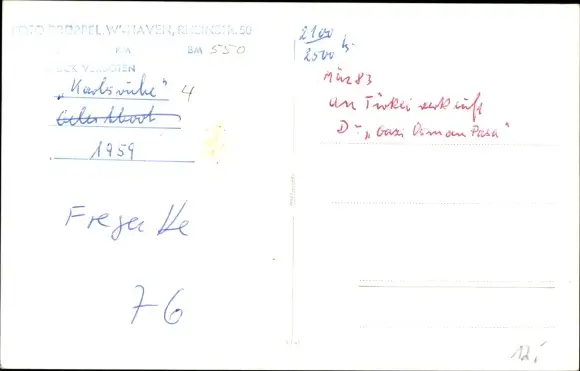 FOTO DRÜPPEL, W'HAVEN, RHEINSTR. 50
BM 550
DRUCK VERBOTEN
„Karlsruhe" 4
1959
Fregatte
76
2100
2500 t
März 83
an Türkei verkauft
D-„Gazi Osman Pasa"
12,-